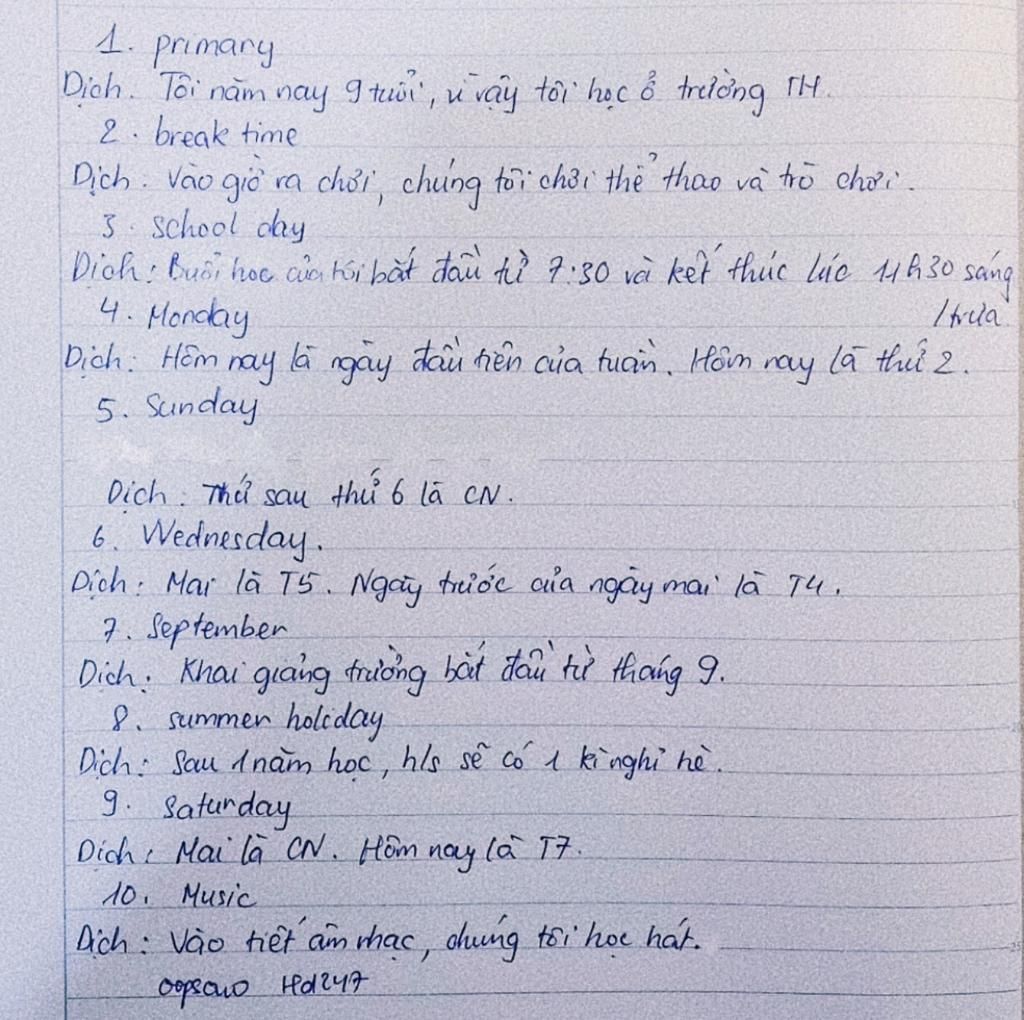 1. primary
Dịch. Tôi năm nay 9 tuổi, vì vậy tôi học ở trường TH.
2. break time
Dịch. Vào giờ ra chơi, chúng tôi chơi thể thao và trò chơi.
3. school day
Dịch: Buổi học của tôi bắt đầu từ 7:30 và kết thúc lúc 11h30 sáng
/trưa
4. Monday
Dịch: Hôm nay là ngày đầu tiên của tuần. Hôm nay là thứ 2.
5. Sunday
Dịch: Thứ sau thứ 6 là CN.
6. Wednesday.
Dịch: Mai là T5. Ngày trước của ngày mai là T4.
7. September
Dịch: Khai giảng trường bắt đầu từ tháng 9.
8. summer holiday
Dịch: Sau 1 năm học, h/s sẽ có 1 kì nghỉ hè.
9. Saturday
Dịch: Mai là CN. Hôm nay là T7.
10. Music
Dịch: Vào tiết âm nhạc, chúng tôi học hát.
Hd247